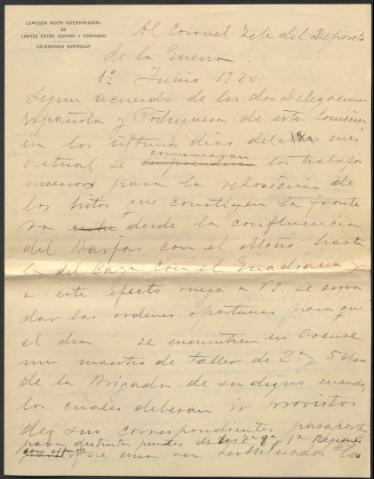 COMISIÓN MIXTA INTERNACIONAL
DE
LÍMITES ENTRE ESPAÑA Y PORTUGAL
DELEGACIÓN ESPAÑOLA
Al Coronel Jefe del Deposito
de la Guerra
1º Junio 1920
Segun acuerdo de las dos Delegaciones
Española y Portuguesa de esta Comision
en los ultimos dias del mes
actual se comenzarán los trabajos
para la reposicion de
los hitos que constituyen la fronte
ra desde la confluencia
del Barjas con el Miño hasta
la del Caya con el Guadiana y
a este efecto ruego a V.S. se sirva
dar las ordenes oportunas para que
el dia se encuentren en Orense
un maestro de taller de 2ª y 5
de la Brigada de su digno mando,
los cuales deberán ir provistos
de sus correspondientes pasaportes
para distintos puntos de las 7ª 8ª y 1ª Regiones
que una vez